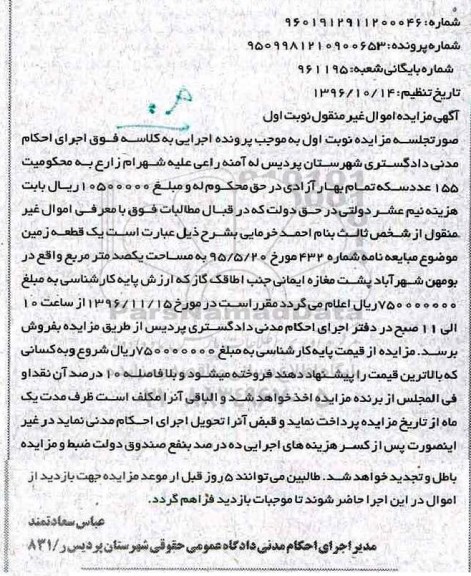 شماره: ۹۶۰۱۹۱۲۹۱۱۲۰۰۰۴۶
شماره پرونده: ۹۵۰۹۹۸۱۲۱۰۹۰۰۶۵۳
شماره بایگانی شعبه: ۹۶۱۱۹۵
تاریخ تنظیم: ۱۳۹۶/۱۰/۱۴
آگهی مزایده اموال غیر منقول نوبت اول
صورتجلسه مزایده نوبت اول به موجب پرونده اجرایی به کلاسه فوق اجرای احکام
مدنی دادگستری شهرستان پردیس له آمنه راعی علیه شهرام زارع به محکومیت
۱۵۵ عدد سکه تمام بهار آزادی در حق محکوم له و مبلغ ۱۰۵۰۰۰۰۰ ریال بابت
هزینه نیم عشر دولتی در حق دولت که در قبال مطالبات فوق با معرفی اموال غیر
منقول از شخص ثالث بنام احمد خرمایی بشرح ذیل عبارت است یک قطعه زمین
موضوع مبایعه نامه شماره ۴۳۲ مورخ ۹۵/۵/۲۰ به مساحت یکصد متر مربع واقع در
بومهن شهرآباد پشت مغازه ایمانی جنب اطاقک گاز که ارزش پایه کارشناسی به مبلغ
۷۵۰۰۰۰۰۰۰ ریال اعلام می گردد مقرر است در مورخ ۱۳۹۶/۱۱/۱۵ از ساعت ۱۰
الی ۱۱ صبح در دفتر اجرای احکام مدنی دادگستری پردیس از طریق مزایده بفروش
برسد. مزایده از قیمت پایه کارشناسی به مبلغ ۷۵۰۰۰۰۰۰۰ ریال شروع و به کسانی
که بالاترین قیمت را پیشنهاد دهند فروخته میشود و بلافاصله ۱۰ درصد آن نقدا و
فی المجلس از برنده مزایده اخذ خواهد شد و الباقی آنرا مکلف است ظرف مدت یک
ماه از تاریخ مزایده پرداخت نماید و قبض آنرا تحویل اجرای احکام مدنی نماید در غیر
اینصورت پس از کسر هزینه های اجرایی ده در صد بنفع صندوق دولت ضبط و مزایده
باطل و تجدید خواهد شد. طالبین می توانند ۵ روز قبل از موعد مزایده جهت بازدید از
اموال در این اجرا حاضر شوند تا موجبات بازدید فراهم گردد.
عباس سعادتمند
مدیر اجرای احکام مدنی دادگاه عمومی حقوقی شهرستان پردیس ر/۸۳۱
ParsNamadData